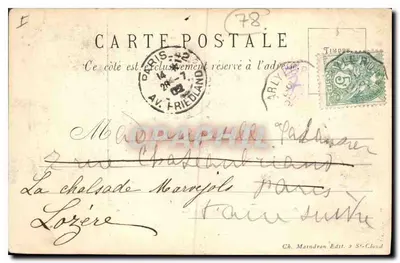 78
CARTE POSTALE
Ce côté est exclusivement réservé à l'adresse
Timbre
PARIS
14
28-7
02
AV. FRIEDLAND
Mademoiselle
2 rue Chateaubriand
La chalsade Marvejols Paris
Lozère faire suivre
Ch. Marendron Edit. à St-Cloud